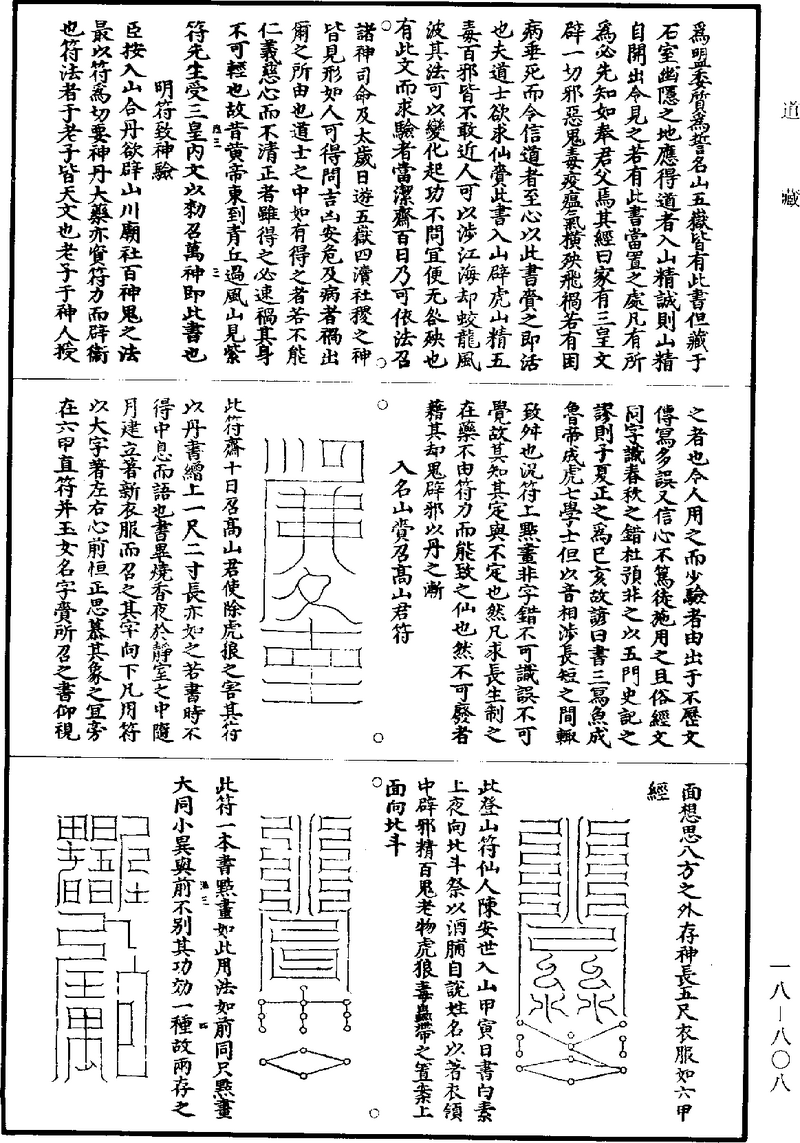 道藏
爲盟委質爲誓名山五嶽皆有此書但藏于
石室幽隱之地應得道者入山精誠則山精
自開出令見之若有此書當置之處凡有所
爲必先知如奉君父焉其經曰家有三皇文
辟一切邪惡鬼毒疫瘟氣橫殃飛禍若有困
病垂死而令信道者至心以此書賫之即活
也夫道士欲求仙賫此書入山辟虎山精五
毒百邪皆不敢近人可以涉江海却蛟龍風
波其法可以變化起功不問宜便无咎殃也
有此文而求驗者當潔齋百日乃可依法召
諸神司命及太歲日遊五嶽四瀆社稷之神
皆見形如人可得問吉凶安危及病者禍出
爾之所由也道士之中如有得之者若不能
仁義慈心而不清正者雖得之必速禍其身
不可輕也故昔黃帝東到青丘過風山見紫
符先生受三皇內文以劾召萬神即此書也
明符致神驗
臣按入山合丹欲辟山川廟社百神鬼之法
最以符爲切要神丹大藥亦資符力而辟衛
也符法者于老子皆天文也老子于神人授
之者也令人用之而少驗者由出于不歷文
傳寫多誤又信心不篤徒施用之且俗經文
同字讖春秋之錯杜預非之以五門史記之
謬則子夏正之爲己亥故諺曰書三寫魚成
魯帝成虎七學士但以音相涉長短之間輙
致舛也況符上點畫非字錯不可識誤不可
覺故其知其定與不定也然凡求長生制之
在藥不由符力而能致之仙也然不可廢者
藉其却鬼辟邪以丹之漸
入名山賫召高山君符
此符齋十日召高山君使除虎狼之害其符
以丹書繒上一尺二寸長亦如之若書時不
得中息而語也書畢燒香夜於靜室之中隨
月建立著新衣服而召之其字向下凡用符
以大字著左右心前恒正思慕其象之宜旁
在六甲直符并玉女名字賫所召之書仰視
面想思八方之外存神長五尺衣服如六甲
經
此登山符仙人陳安世入山甲寅日書白素
上夜向北斗祭以酒脯自說姓名以著衣領
中辟邪精百鬼老物虎狼毒蟲帶之置案上
面向北斗
此符一本書點畫如此用法如前同只點畫
大同小異與前不別其功効一種故兩存之
一八—八〇八